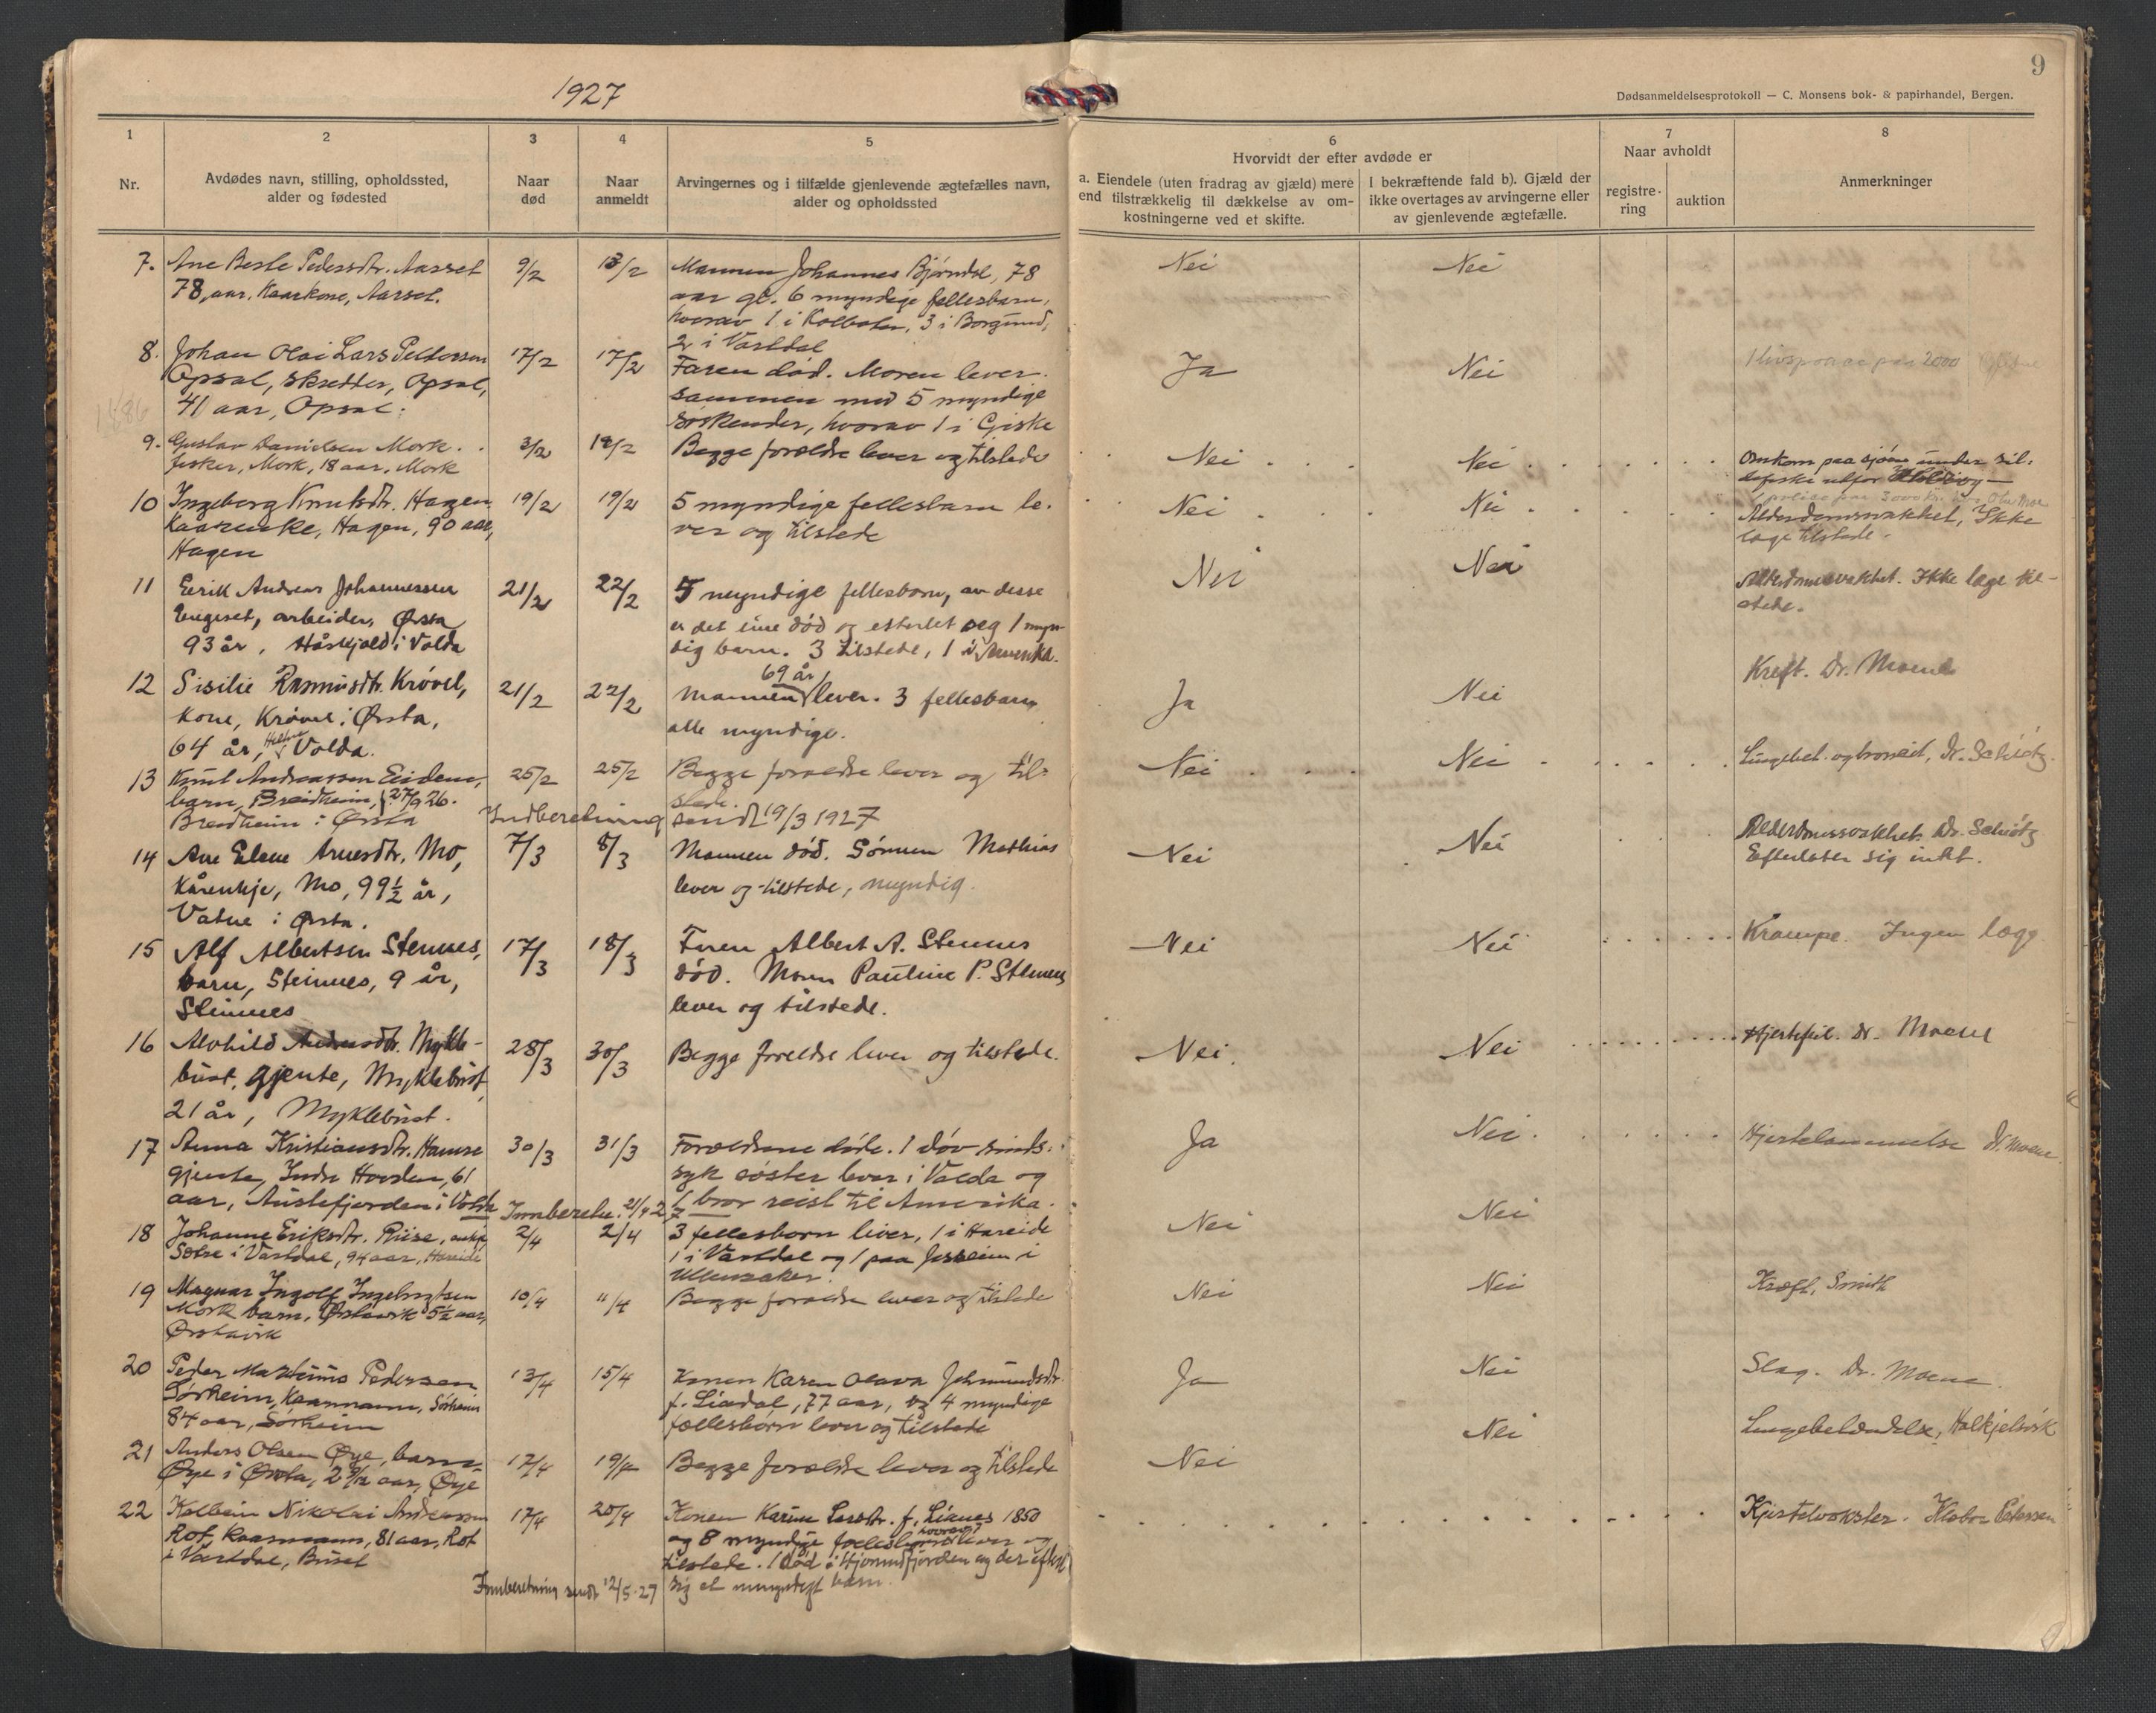 1927
9
Dødsanmeldelsesprotokoll — C. Monsens bok- & papirhandel, Bergen.
1
2
3
4
5
6
7
8
Nr.
Avdødes navn, stilling, opholdssted,
alder og fødested
Naar
død
Naar
anmeldt
Arvingernes og i tilfælde gjenlevende ægtefælles navn,
alder og opholdssted
Hvorvidt der efter avdøde er
a. Eiendele (uten fradrag av gjæld) mere
end tilstrækkelig til dækkelse av om-
kostningerne ved et skifte.
I bekræftende fald b). Gjæld der
ikke overtages av arvingerne eller
av gjenlevende ægtefælle.
Naar avholdt
registre-
ring
auktion
Anmerkninger
7. Ane Pedersdtr. Aarset
78 aar, Kaarkone, Aarset.
9/2
Mannen Johannes Bjørndal, 78
aar gl. 6 myndige fellesbarn,
hvorav 1 i 3 i Borgund,
2 i Vartdal
Nei
Nei
8. Johan Olai Lars Pettersen
Opsal, skredder, Opsal,
41 aar, Opsal.
17/2
17/2
Faren død. Moren lever
sammen med 5 myndige
søskender, hvorav 1 i Giske
Ja
Nei
1 paa 2000
9. Gustav Danielsen Mork
fisker, Mork, 18 aar, Mork
3/2
Begge forældre lever og tilstede
Nei
Nei
Omkom paa sjøen under sil-
defiske utfor
10 Ingeborg Knutsdtr. Hagen
Kaarenke, Hagen, 90 aar,
Hagen
19/2
19/2
5 myndige fellesbarn le-
ver og tilstede
Nei
Nei
Alderdomssvakhet, Ikke
læge tilstede.
11 Eirik Andreas Johannessen
Engeset, arbeider, Ørsta
93 år, Håskjold i Volda
21/2
22/2
5 myndige fellesborn, av desse
er det eine død og etterlet seg 1 myn-
dig barn. 3 tilstede, 1 i Amerika.
Nei
Nei
Alderdomssvakhet. Ikke læge til-
stede.
12 Sisilie Rasmusdtr. Krøvel,
kone, Krøvel i Ørsta,
64 år, Volda.
21/2
22/2
69 år
Mannen lever. 3 fellesbarn
alle myndige.
Ja
Nei
Kreft. Dr. Moene
13 Knut Andreassen Eidem,
barn, Breidheim, f. 27/9 26.
Breidheim i Ørsta
25/2
25/2
Begge forældre lever og til-
stede.
Nei
Nei
Lungebet. og bronkit, Dr. Schiøtz
Indberetning sendt 19/3 1927
14 Ane Elene Arnesdtr. Mo,
Kårenkje, Mo, 99½ år,
Vatne i Ørsta.
7/3
8/3
Mannen død. Sønnen Mathias
lever og tilstede, myndig.
Nei
Nei
Alderdomssvakhet. Dr. Schiøtz
Efterlater sig intet.
15 Alf Albertsen Steinnes,
barn, Steinnes, 9 år,
Steinnes
17/3
18/3
Faren Albert A. Steinnes
død. Moren Pauline P. Steinnes
lever og tilstede.
Nei
Nei
Krampe. Ingen læge.
16 Alvhild Andersdtr. Mykle-
bust, gjente, Myklebust,
21 år, Myklebust.
28/3
30/3
Begge foreldre lever og tilstede.
Nei.
Nei
Hjertefeil. Dr. Moene
17 Anna Kristiansdtr. Hamre
gjente, Indre Hovden, 61
aar, Austefjorden i Volda
30/3
31/3
Forældrene døde. 1 døv sinds-
syk søster lever i Volda og
1 bror reist til Amerika.
Ja
Nei
Hjertelammelse Dr. Moene.
Innberetn. 2/4 27
18 Johanne Eriksdtr. Riise, enkje
Sætre i Vartdal, 94 aar, Hareide
2/4
2/4
3 fellesborn liver, 1 i Hareide
1 i Vartdal og 1 paa Jessheim i
Ullensaker.
Nei
Nei
19 Magnar Ingolf Ingebrigtsen
Mork barn, Ørstavik 5½ aar,
Ørstavik
10/4
11/4
Begge forældre lever og tilstede
Nei
Nei
Kræft, Smith
20 Peder Martinus Pedersen
Sørheim, Kaarmann, Sørheim
84 aar, Sørheim
13/4
15/4
Konen Karen Olava Jetmundsdtr.
f. Liadal, 77 aar, og 4 myndige
fællesbørn lever og tilstede
Ja
Nei
Slag. Dr. Moene.
21 Anders Olsen Øye, barn
Øye i Ørsta, 2 9/12 aar, Øye
17/4
19/4
Begge forældre lever og tilstede
Nei
Nei
Lungebetændelse, Halkjelsvik
22 Kolbein Nikolai Andreassen
Rot, Kaarmann, 81 aar, Rot
i Vartdal, Buset
17/4
20/4
Konen Karine Larsdtr. f. Lianes 1850
og 8 myndige fællesbørn lever og
tilstede. 1 død i Hjørundfjorden og der efterlet
sig et umyndigt barn.
Innberetning sendt 12/5-27